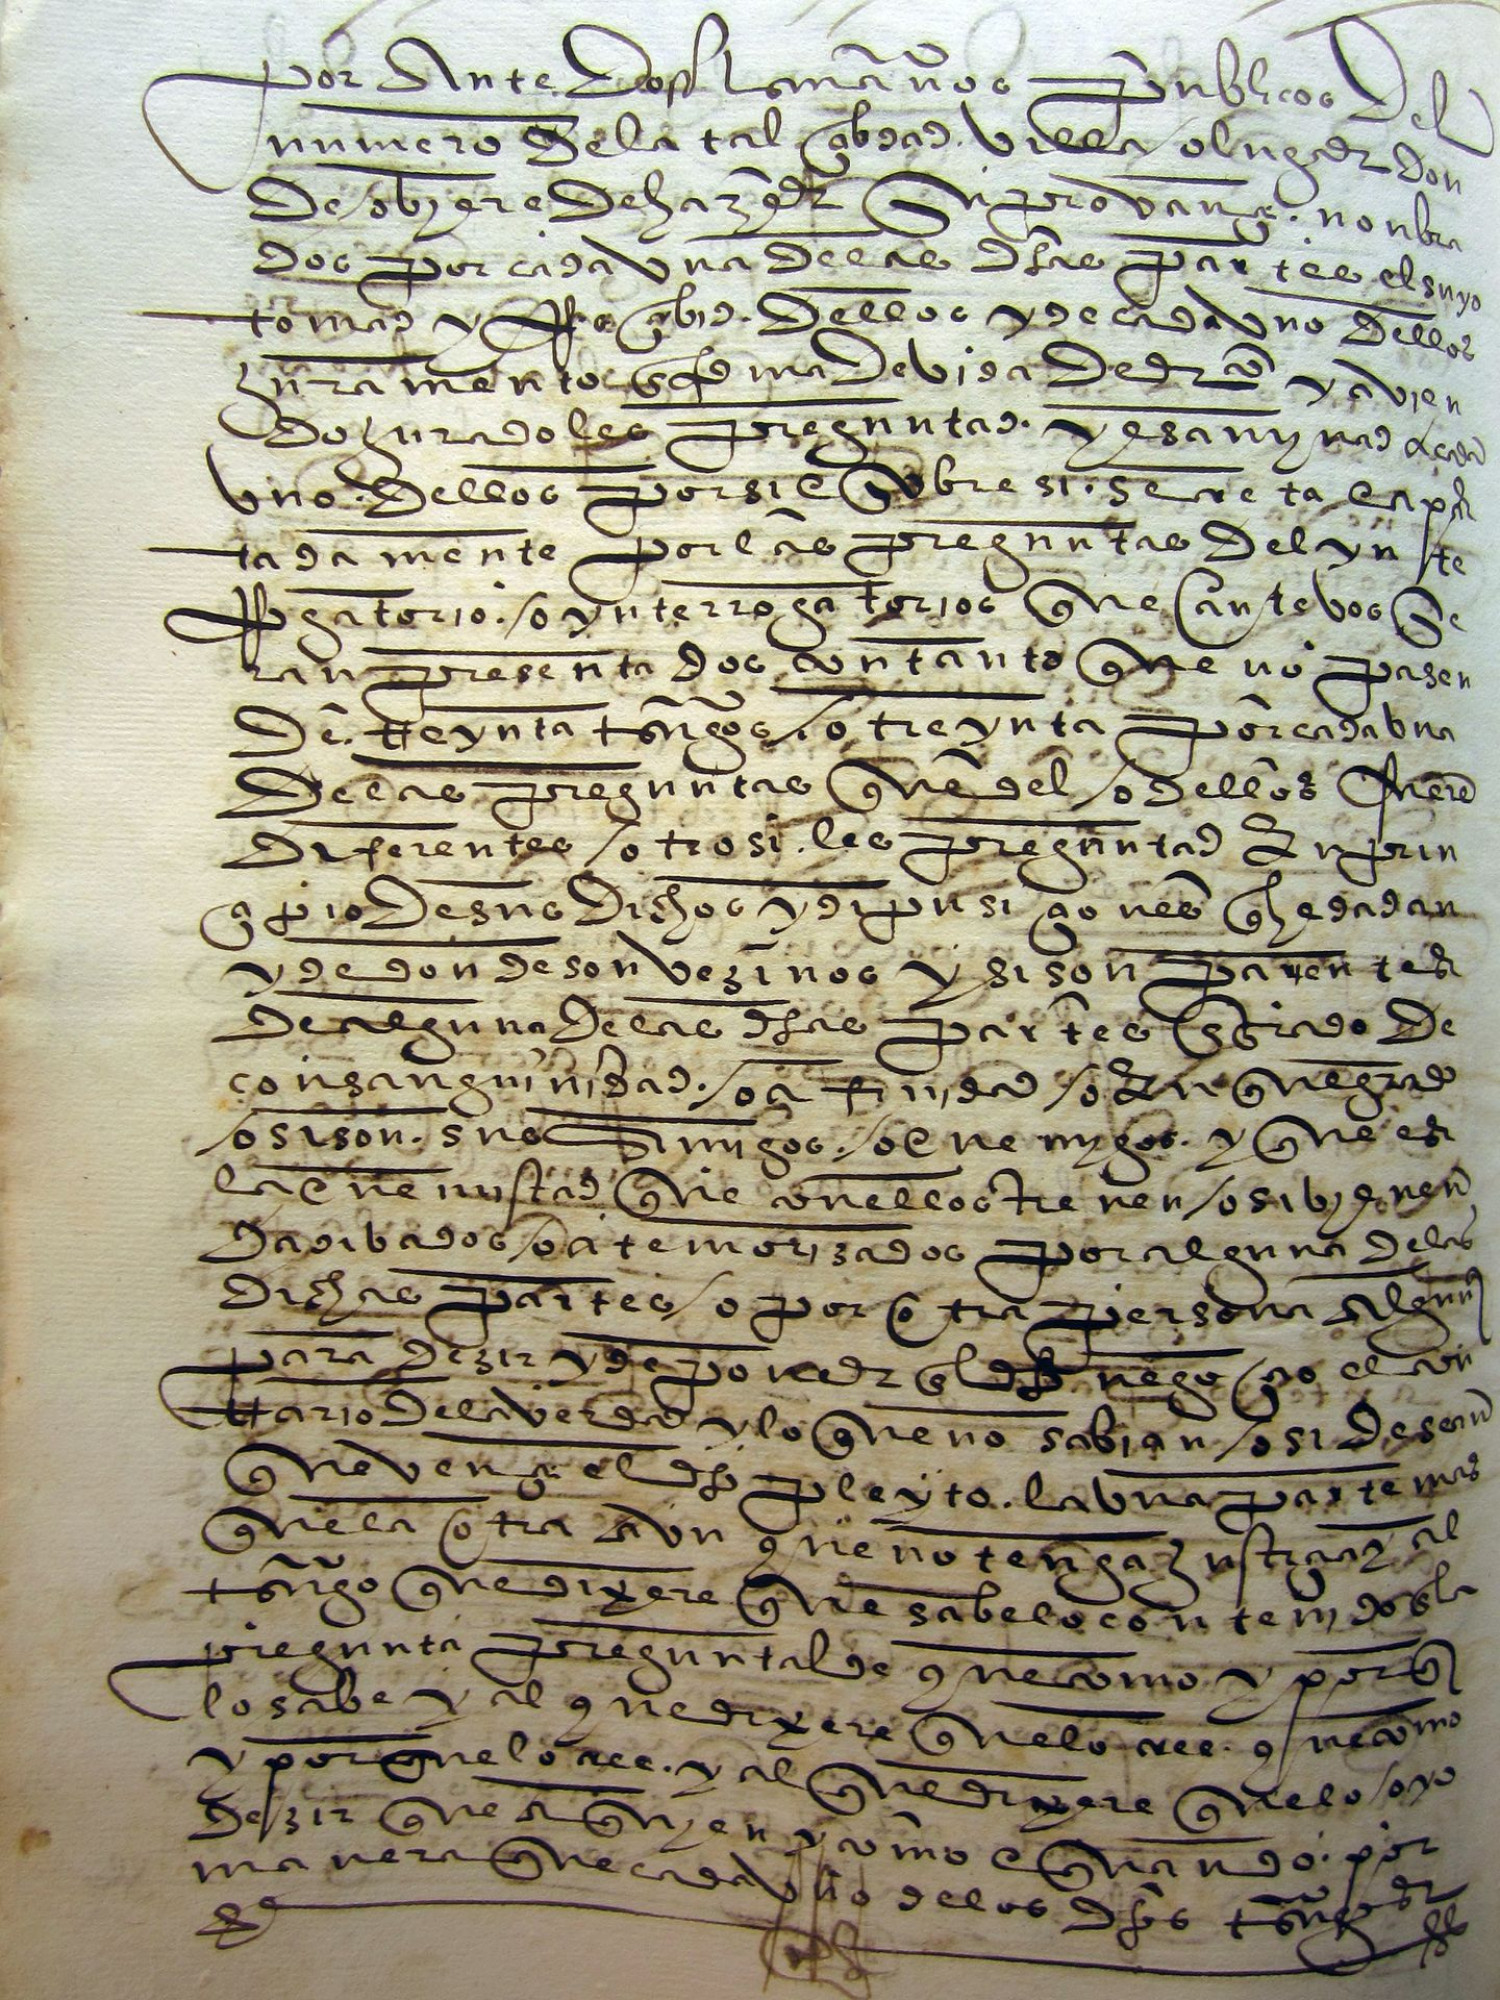 por Ante Dos escrivanos publicos Del
numero De la tal çibdad. villa o lugar don
De obiere De hazer su provança. nonbra
dos por cada vna De las dhas partes el suyo
tomad y Resçibid. Dellos y de cada vno Dellos
juramento en forma Devida De drº y avien
Do jurado les preguntad. y esaminad a cada
vno. Dellos por si e sobre si. secreta e apar
tada mente por las preguntas Del ynte
Rogatorio. o ynterrogatorios que ante vos se
ran presentados con tanto que no pasen
De. treynta tºs o treynta por cada vna
De las preguntas que del o dellos fueren
Diferentes o trosi. les preguntad En prin
çipio De sus Dichos y dipusiçiones que hedad an
y de donde son vezinos y si son parientes
De alguna De las dhas partes en grado De
consanguinidad. o afinidad o En que grado
o si son. sus Amigos. o enemygos. y que es
la enemistad que con ellos tienen o si bienen
Dadibados o atemorizados por alguna De las
Dichas partes o por otra persona Alguna
para Dezir y deponer en el dho negoçio el con
trario De la verdad y lo que no sabian o si Desean
que vença el dho pleyto. la vna parte mas
que la otra Avn que no tenga justiçia y al
tº que dixere que sabe lo contenido en la
pregunta preguntalde que como y por que
lo sabe y al que dixere que lo cree. que como
y por que lo cree. y al que dixere que lo oyo
Dezir que A quien y como e quando. por
manera que cada vno de los dhos tºs de